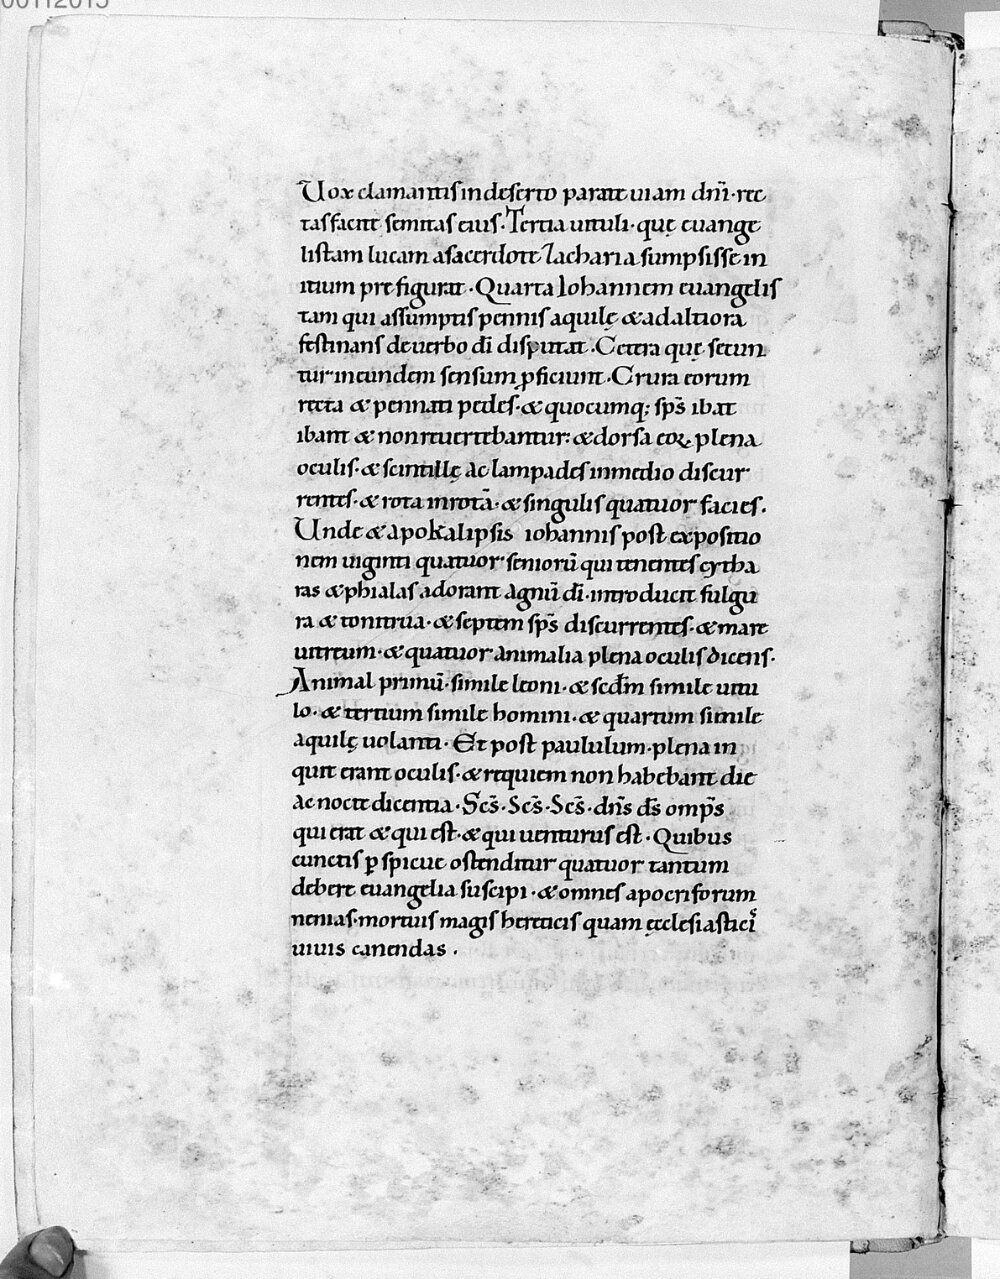 00112015
Uox clamantis in deserto parate uiam dnī · rec
tas facite semitas eius · Tertia uituli · quę euange
listam lucam a sacerdote zacharia sumpsisse in
itium prefigurat · Quarta Iohannem euangelis
tam qui assumptis pennis aquilę & ad altiora
festinans de uerbo dī disputat · Cetera quę secun
tur in eundem sensum ꝓficiunt · Crura eorum
recta & pennati pedes · & quocumq; sps̄ ibat
ibant & non reuertebantur : & dorsa eoꝝ plena
oculis · & scintillę ac lampades in medio discur
rentes · & rota in rotā · & singulis quatuor facies .
Unde & apokalipsis iohannis post expositio
nem uiginti quatuor seniorū qui tenentes cytha
ras & phialas adorant agnū dī · introducit fulgu
ra & tonitrua · & septem sps̄ discurrentes · & mare
uitreum · & quatuor animalia plena oculis dicens ·
Animal primū · simile leoni · & scdm̄ simile uitu
lo · & tertium simile homini · & quartum simile
aquilę uolanti · Et post paululum · plena in
quit erant oculis · & requiem non habebant die
ac nocte dicentia · Scs̄ · Scs̄ · Scs̄ · dn̄s ds̄ omp̄s
qui erat & qui est · & qui uenturus est · Quibus
cunctis ꝑspicue ostenditur quatuor tantum
debere euangelia suscipi · & omnes apocriforum
nenias · mortuis magis hereticis quam ęcclesiastici
uiuis canendas .